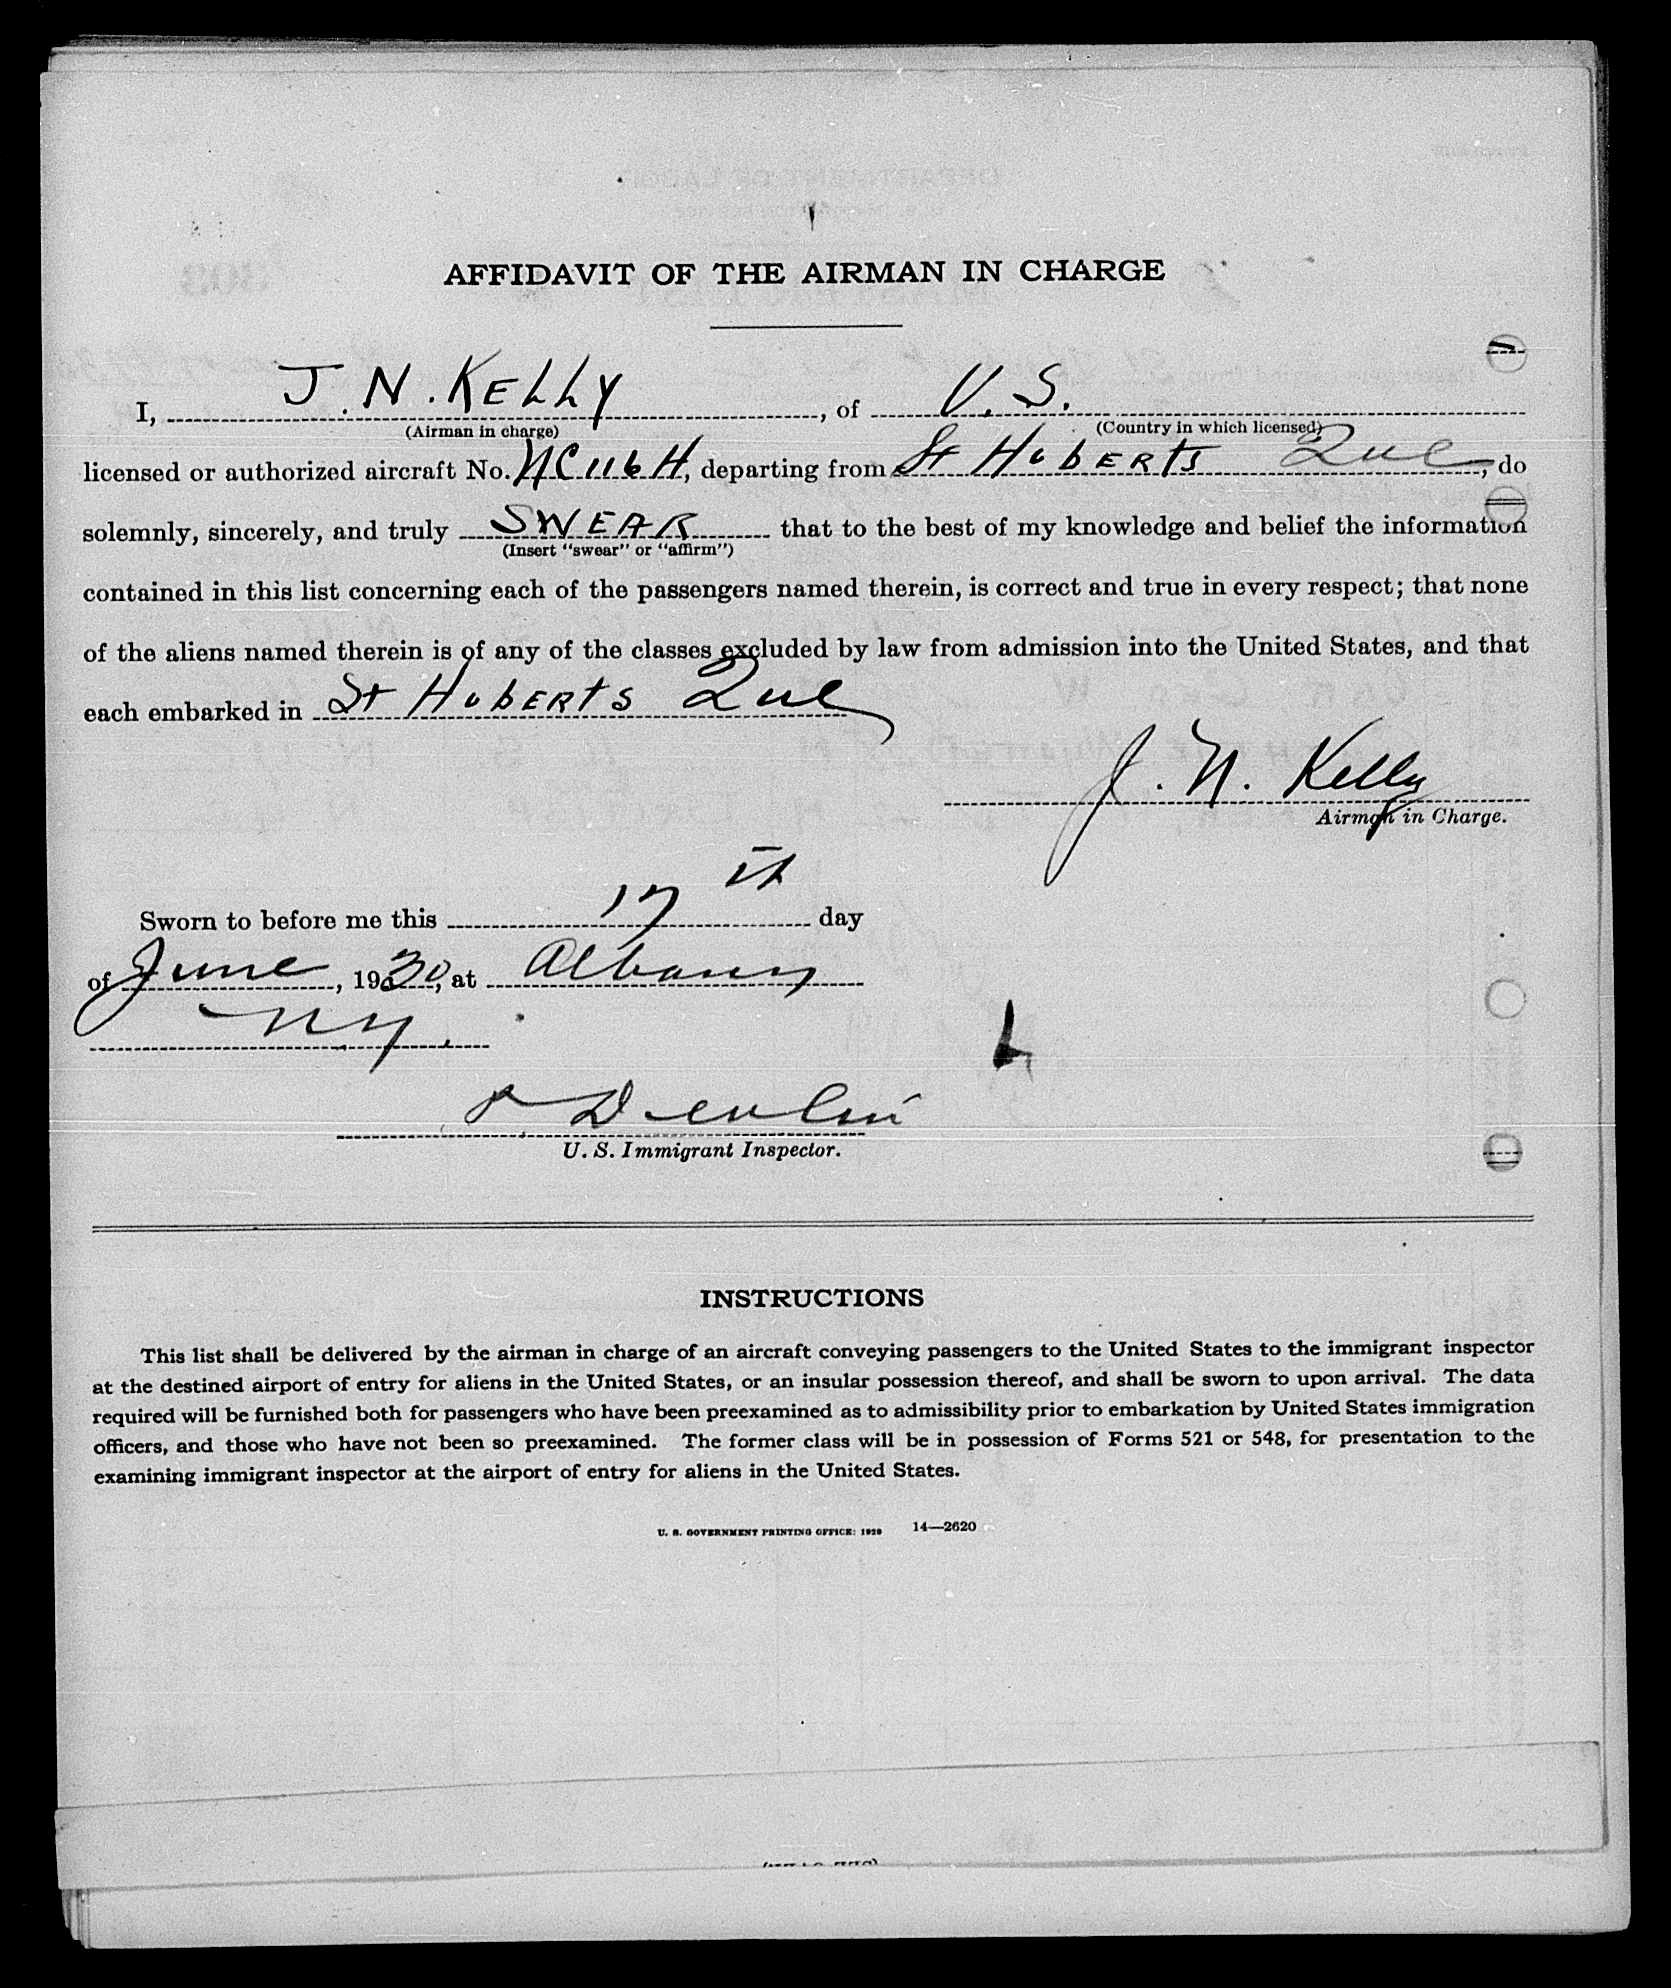 AFFIDAVIT OF THE AIRMAN IN CHARGE
I, J. N. KELLY, of U. S.
(Airman in charge) (Country in which licensed)
licensed or authorized aircraft No. NC116H, departing from St HubERTS Que, do
solemnly, sincerely, and truly SWEAR that to the best of my knowledge and belief the information
(Insert "swear" or "affirm")
contained in this list concerning each of the passengers named therein, is correct and true in every respect; that none
of the aliens named therein is of any of the classes excluded by law from admission into the United States, and that
each embarked in St HubERTS Que
J. N. Kelly
Airman in Charge.
Sworn to before me this 17th day
of June, 1930, at Albany
NY.
Devlin
U. S. Immigrant Inspector.
INSTRUCTIONS
This list shall be delivered by the airman in charge of an aircraft conveying passengers to the United States to the immigrant inspector
at the destined airport of entry for aliens in the United States, or an insular possession thereof, and shall be sworn to upon arrival. The data
required will be furnished both for passengers who have been preexamined as to admissibility prior to embarkation by United States immigration
officers, and those who have not been so preexamined. The former class will be in possession of Forms 521 or 548, for presentation to the
examining immigrant inspector at the airport of entry for aliens in the United States.
U. S. GOVERNMENT PRINTING OFFICE: 1929 14—2620